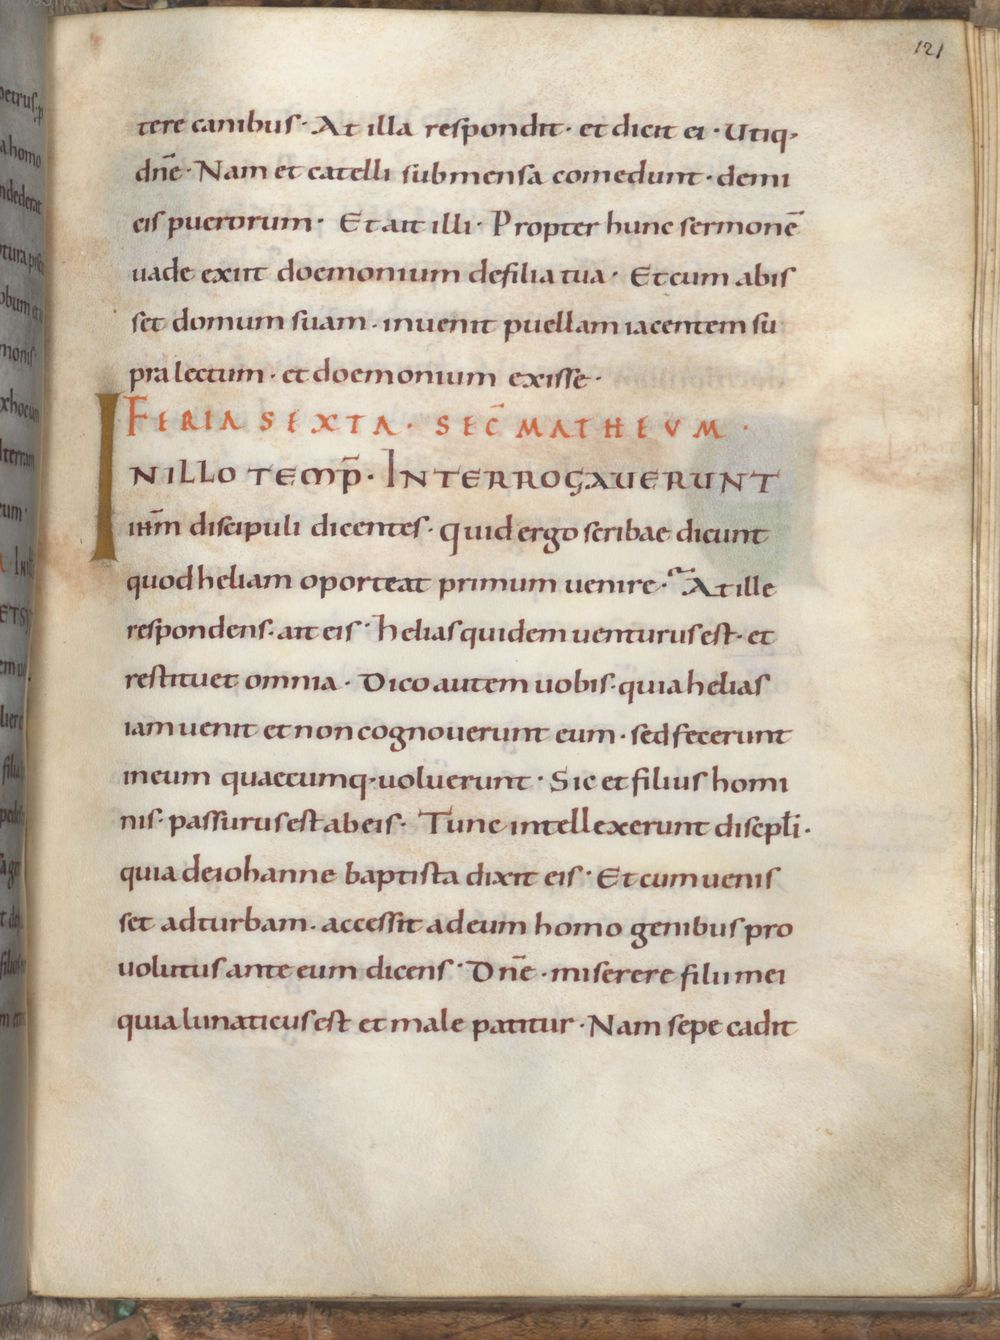 121
tere canibus · At illa respondit · et dicit ei · Utiq·
dn̄e · Nam et catelli sub mensa comedunt · de mi
cis puerorum · Et ait illi · Propter hunc sermonē
uade exiit doemonium de filia tua · Et cum abis
set domum suam · inuenit puellam iacentem su
pra lectum · et doemonium exisse ·
FERIA SEXTA · SEC̄ MATHEUM ·
IN ILLO TEMP̄ · INTERROGAUERUNT
ihm̄ discipuli dicentes · quid ergo scribae dicunt
quod heliam oporteat primum uenire · At ille
respondens · ait eis · helias quidem uenturus est · et
restituet omnia · Dico autem uobis · quia helias
iam uenit et non cognouerunt eum · sed fecerunt
in eum quaecumq· uoluerunt · Sic et filius homi
nis · passurus est ab eis · Tunc intellexerunt discipl̄i ·
quia de iohanne baptista dixit eis · Et cum uenis
set ad turbam · accessit ad eum homo genibus pro
uolutus ante eum dicens · Dn̄e · miserere filii mei
quia lunaticus est et male patitur · Nam sepe cadit